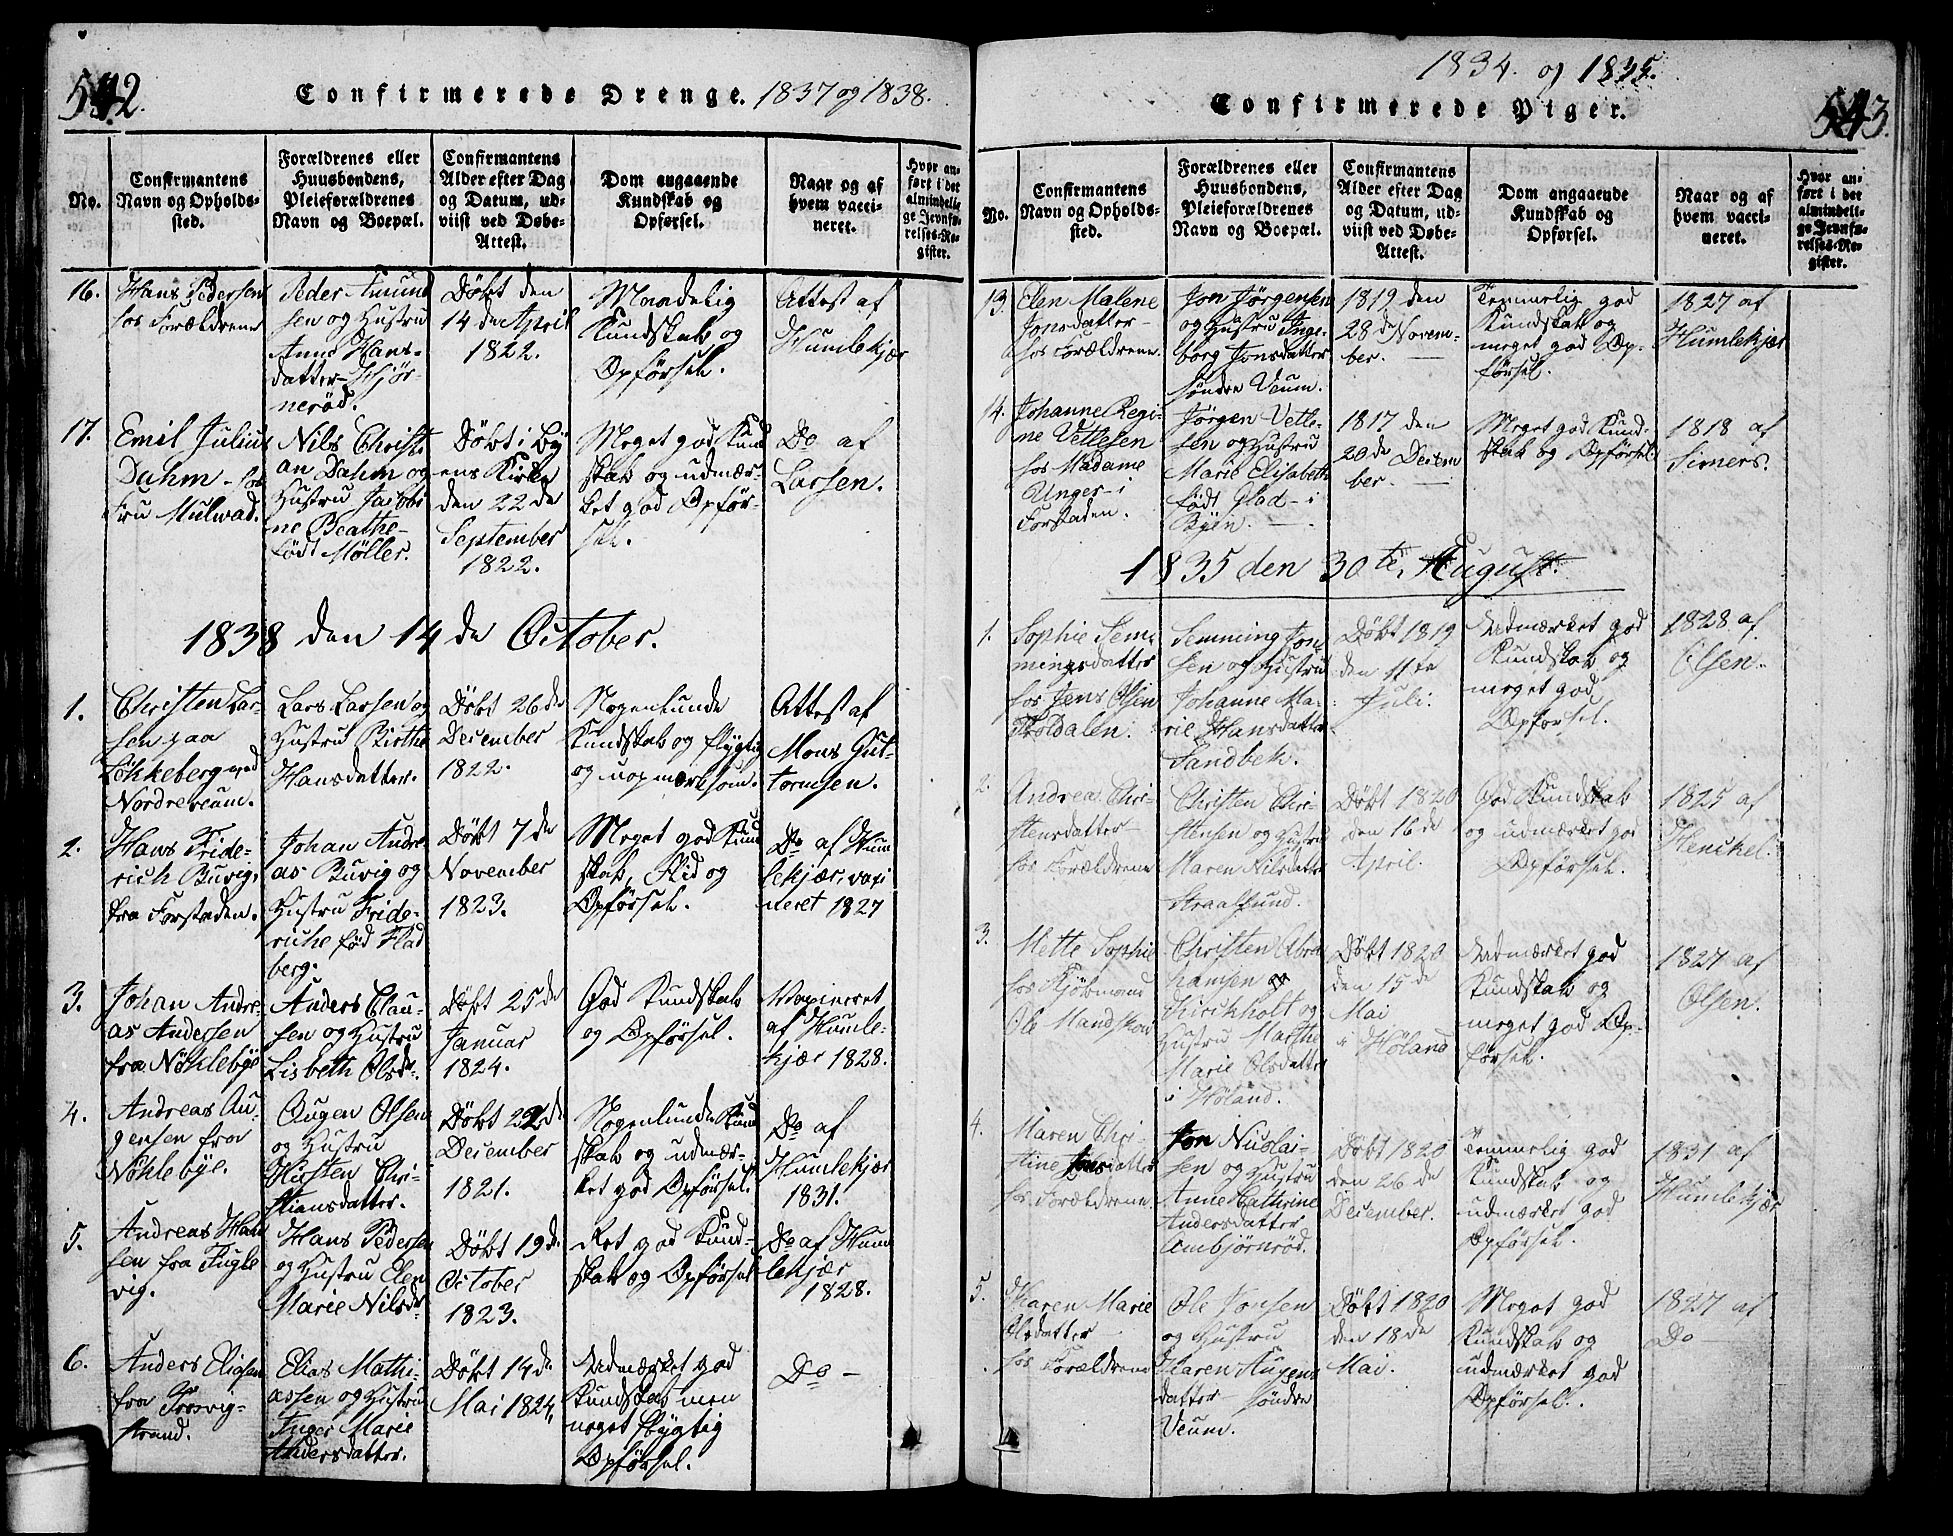 542.
Confirmerede Drenge. 1837 og 1838.
No.
Confirmantens
Navn og Opholds-
sted.
Forældrenes eller
Huusbondens,
Pleieforældrenes
Navn og Boepæl.
Confirmantens
Alder efter Dag
og Datum, ud-
viist ved Døbe-
Attest.
Dom angaaende
Kundskab og
Opførsel.
Naar og af
hvem vacci-
neret.
Hvor an-
ført i det
almindeli-
ge Jevnfø-
relses-Re-
gister.
16.
Hans Pedersen
hos Forældrene
Peder Amund
sen og Hustru
Anne Hans-
datter- Hjør-
nerød.
Døbt den
14 de April
1822.
Maadelig
Kundskab og
Opførsel.
Attest af
Humlekjær
17.
Emil Julius
Dahm - hos
Fru Mulvad.
Nils Christi
an Dahm og
Hustru Jacobi
ne Beathe-
født Møller.
Døbt i By
ens Kirke
den 22 de
September
1822.
Meget god Kund
skab og udmær-
ket god Opfør-
sel.
Do af
Larsen.
1838 den 14 de October.
1.
Christen Lar-
sen paa
Løkkeberg ved
Nordre veum.
Lars Larsen og
Hustru Birthe
Hansdatter.
Døbt 26 de
December
1822.
Nogenlunde
Kundskab og flygtig
og uopmærksom.
Attest af
Mons Gut-
tormsen.
2.
Hans Fride-
rich Buvig,
fra Forstaden.
Johan Andre
as Buvig og
Hustru Fride-
riche fød Flad
berg.
Døbt 7 de
November
1823.
Meget god Kund
skab, Flid og
Opførsel.
Do af Hum
lekjær, vaxi
neret 1827
3.
Johan Andre-
as Andersen
fra Nøklebye
Anders Clau-
sen og Hustru
Lisbeth Olsdr.
Døbt 25 de
Januar
1824.
God Kundskab
og Opførsel.
Vaxineret
af Humle-
kjær 1828.
4.
Andreas Au-
gensen fra
Nøklebye.
Augen Olsen
og Hustru
Kirsten Chri-
stiansdatter.
Døbt 22 de
December
1821.
Nogenlunde Kund
skab og udmær-
ket god Opførsel.
Do af
Humlekjær
1831.
5.
Andreas Han
sen fra Fugle
vig.
Hans Pedersen
og Hustru Elen
Marie Nilsdr
Døbt 19 d.
October
1823.
Ret god Kund-
skab og Opførsel
Do af Hum
lekjær
1828.
6.
Anders Eliasen
fra Trosvig-
strand.
Elias Mathi-
assen og Hustru
Inger Marie
Andersdatter.
Døbt 14 d.
Mai 1824.
Udmærket god
Kundskab men
noget flygtig
Opførsel.
Do -
1834. og 1835.
Confirmerede Piger.
543.
No.
Confirmantens
Navn og Opholds-
sted.
Forældrenes eller
Huusbondens,
Pleieforældrenes
Navn og Boepæl.
Confirmantens
Alder efter Dag
og Datum, ud-
viist ved Døbe-
Attest.
Dom angaaende
Kundskab og
Opførsel.
Naar og af
hvem vacci-
neret.
Hvor an-
ført i det
almindeli-
ge Jevnfø-
relses-Re-
gister.
13.
Elen Malene
Jonsdatter -
hos Forældrene.
Jon Jørgensen
og Hustru Inge-
borg Jonsdatter
søndre Veum.
1819 den
28 de Novem-
ber. -
Temmelig god
Kundskab og
meget god Op-
førsel.
1827 af
Humlekjær
14.
Johanne Regi-
ne Vetlesen
hos Madame
Unger - i
Forstaden.
Jørgen Vetle-
sen og Hustru
Marie Elisabeth
født Glad - i
Byen. -
1817 den
20 de Decem
ber. -
Meget god Kund-
skab og Opførsel.
1818 af
Simers.
1835 den 30te August.
1.
Sophie Sem-
mingsdatter
hos Jens Olsen
Troldalen.
Semming Jon-
sen og Hustru
Johanne Ma-
rie Hansdatter
Sandbek.
Døbt 1819
den 11te
Juli.
Udmærket god
Kundskab og
meget god
Opførsel.
1828 af
Olsen.
2.
Andrea Chri-
stensdatter -
hos Forældrene
Christen Chri-
stensen og Hustru
Maren Nilsdatter
Straalsund.
Døbt 1820
den 16 de
April.
God Kundskab
og udmærket god
Opførsel.
1825 af
Henckel.
3.
Mette Sophie
hos Kjøbmand
Ole Mandskou
Christen Abra
hamsen
Kirckholt og
Hustru Marthe
Marie Olsdatter
i Høland.
Døbt 1820
den 15 de
Mai
i Høland
Udmærket god
Kundskab og
meget god Op-
førsel.
1827 af
Olsen.
4.
Maren Chri-
stine Jonsdatter
hos Forældrene.
Jon Nicolai-
sen og Hustru
Anne Cathrine
Andersdatter
Ambjørnrød.
Døbt 1820
den 26 de
December.
Temmelig god
Kundskab og
udmærket god
Opførsel.
1831 af
Humlekjær
5.
Karen Marie
Olsdatter -
hos Forældrene
Ole Jonsen
og Hustru
Karen Augens
datter - søndre
Veum.
Døbt 1820
den 18 de
Mai.
Meget god
Kundskab og
udmærket god
Opførsel.
1827 af
Do -